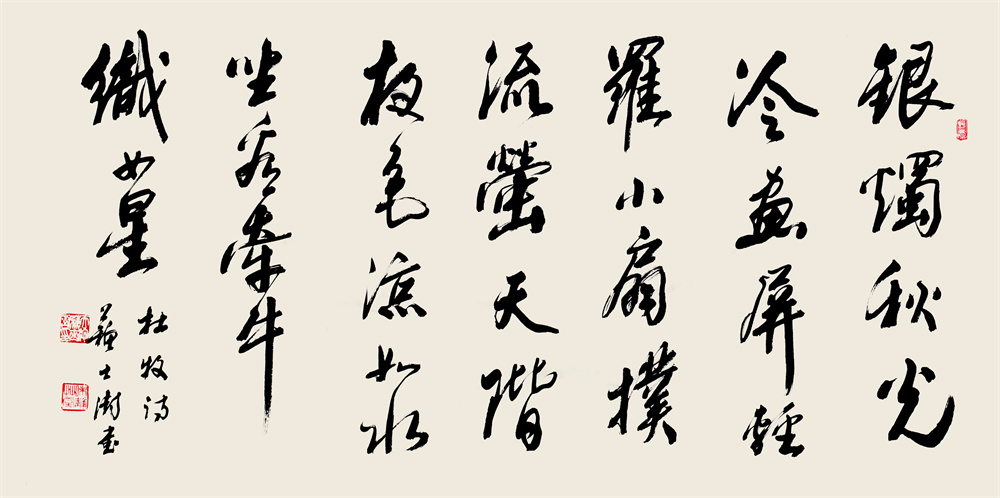 銀燭秋光
冷畫屏輕
羅小扇撲
流螢天階
夜色涼如水
坐看牽牛
織女星
杜牧詩
蘇士澍書